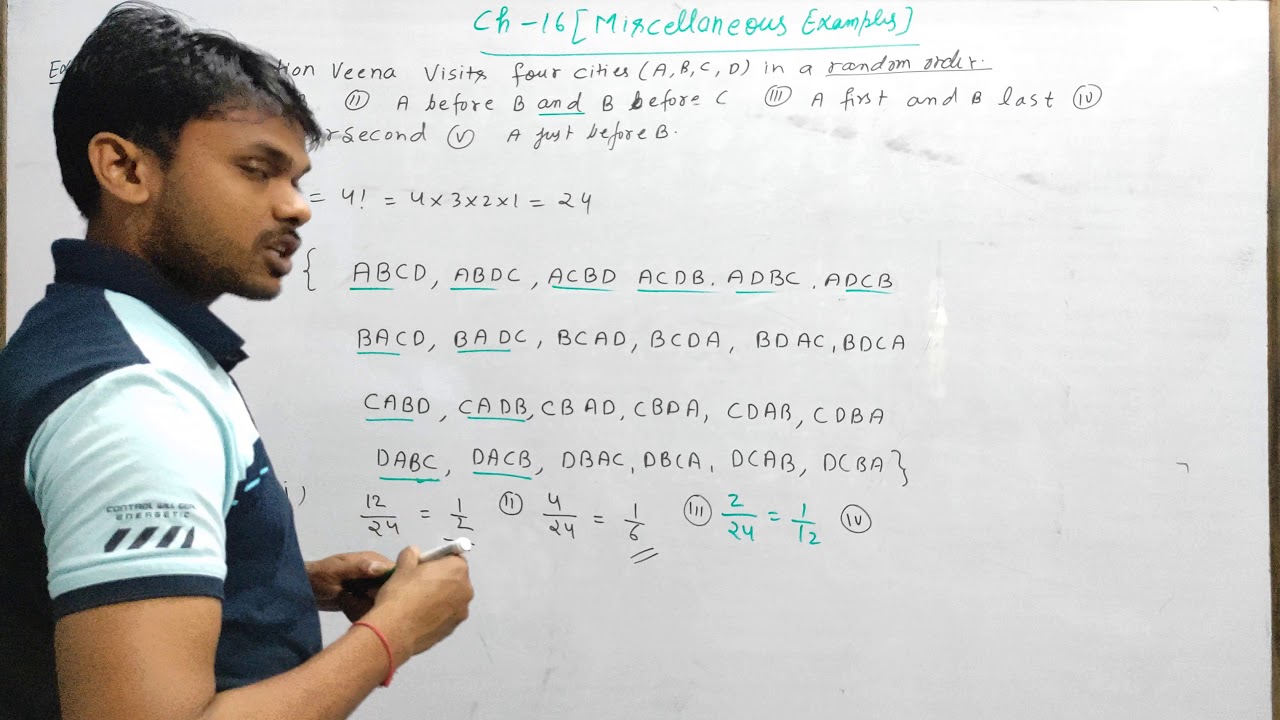 Ch-16 [Miscellaneous Examples]
Veena Visits four cities (A, B, C, D) in a random order.
(II) A before B and B before C (III) A first and B last (IV)
second (V) A just before B.
= 4! = 4 x 3 x 2 x 1 = 24
{ ABCD, ABDC, ACBD ACDB. ADBC, ADCB
BACD, BADC, BCAD, BCDA, BDAC, BDCA
CABD, CADB, CBAD, CBDA, CDAB, CDBA
DABC, DACB, DBAC, DBCA, DCAB, DCBA }
i) 12/24 = 1/2 (II) 4/24 = 1/6 (III) 2/24 = 1/12 (IV)
CONTROL WILL
ENERGETIC